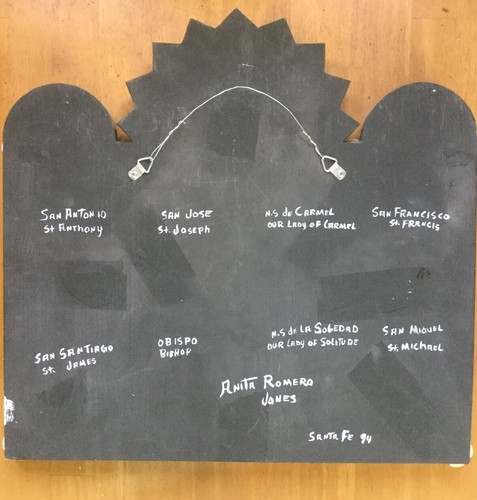 SAN ANTONIO
St ANTHONY
SAN JOSE
St. JOSEPH
N.S de CARMEL
OUR LADY OF CARMEL
SAN FRANCISCO
St. FRANCIS
SAN SANTIAGO
St. JAMES
OBISPO
BISHOP
N.S de LA SOLEDAD
OUR LADY OF SOLITUDE
SAN MIGUEL
St. MICHAEL
ANITA ROMERO
JONES
SANTA FE 94